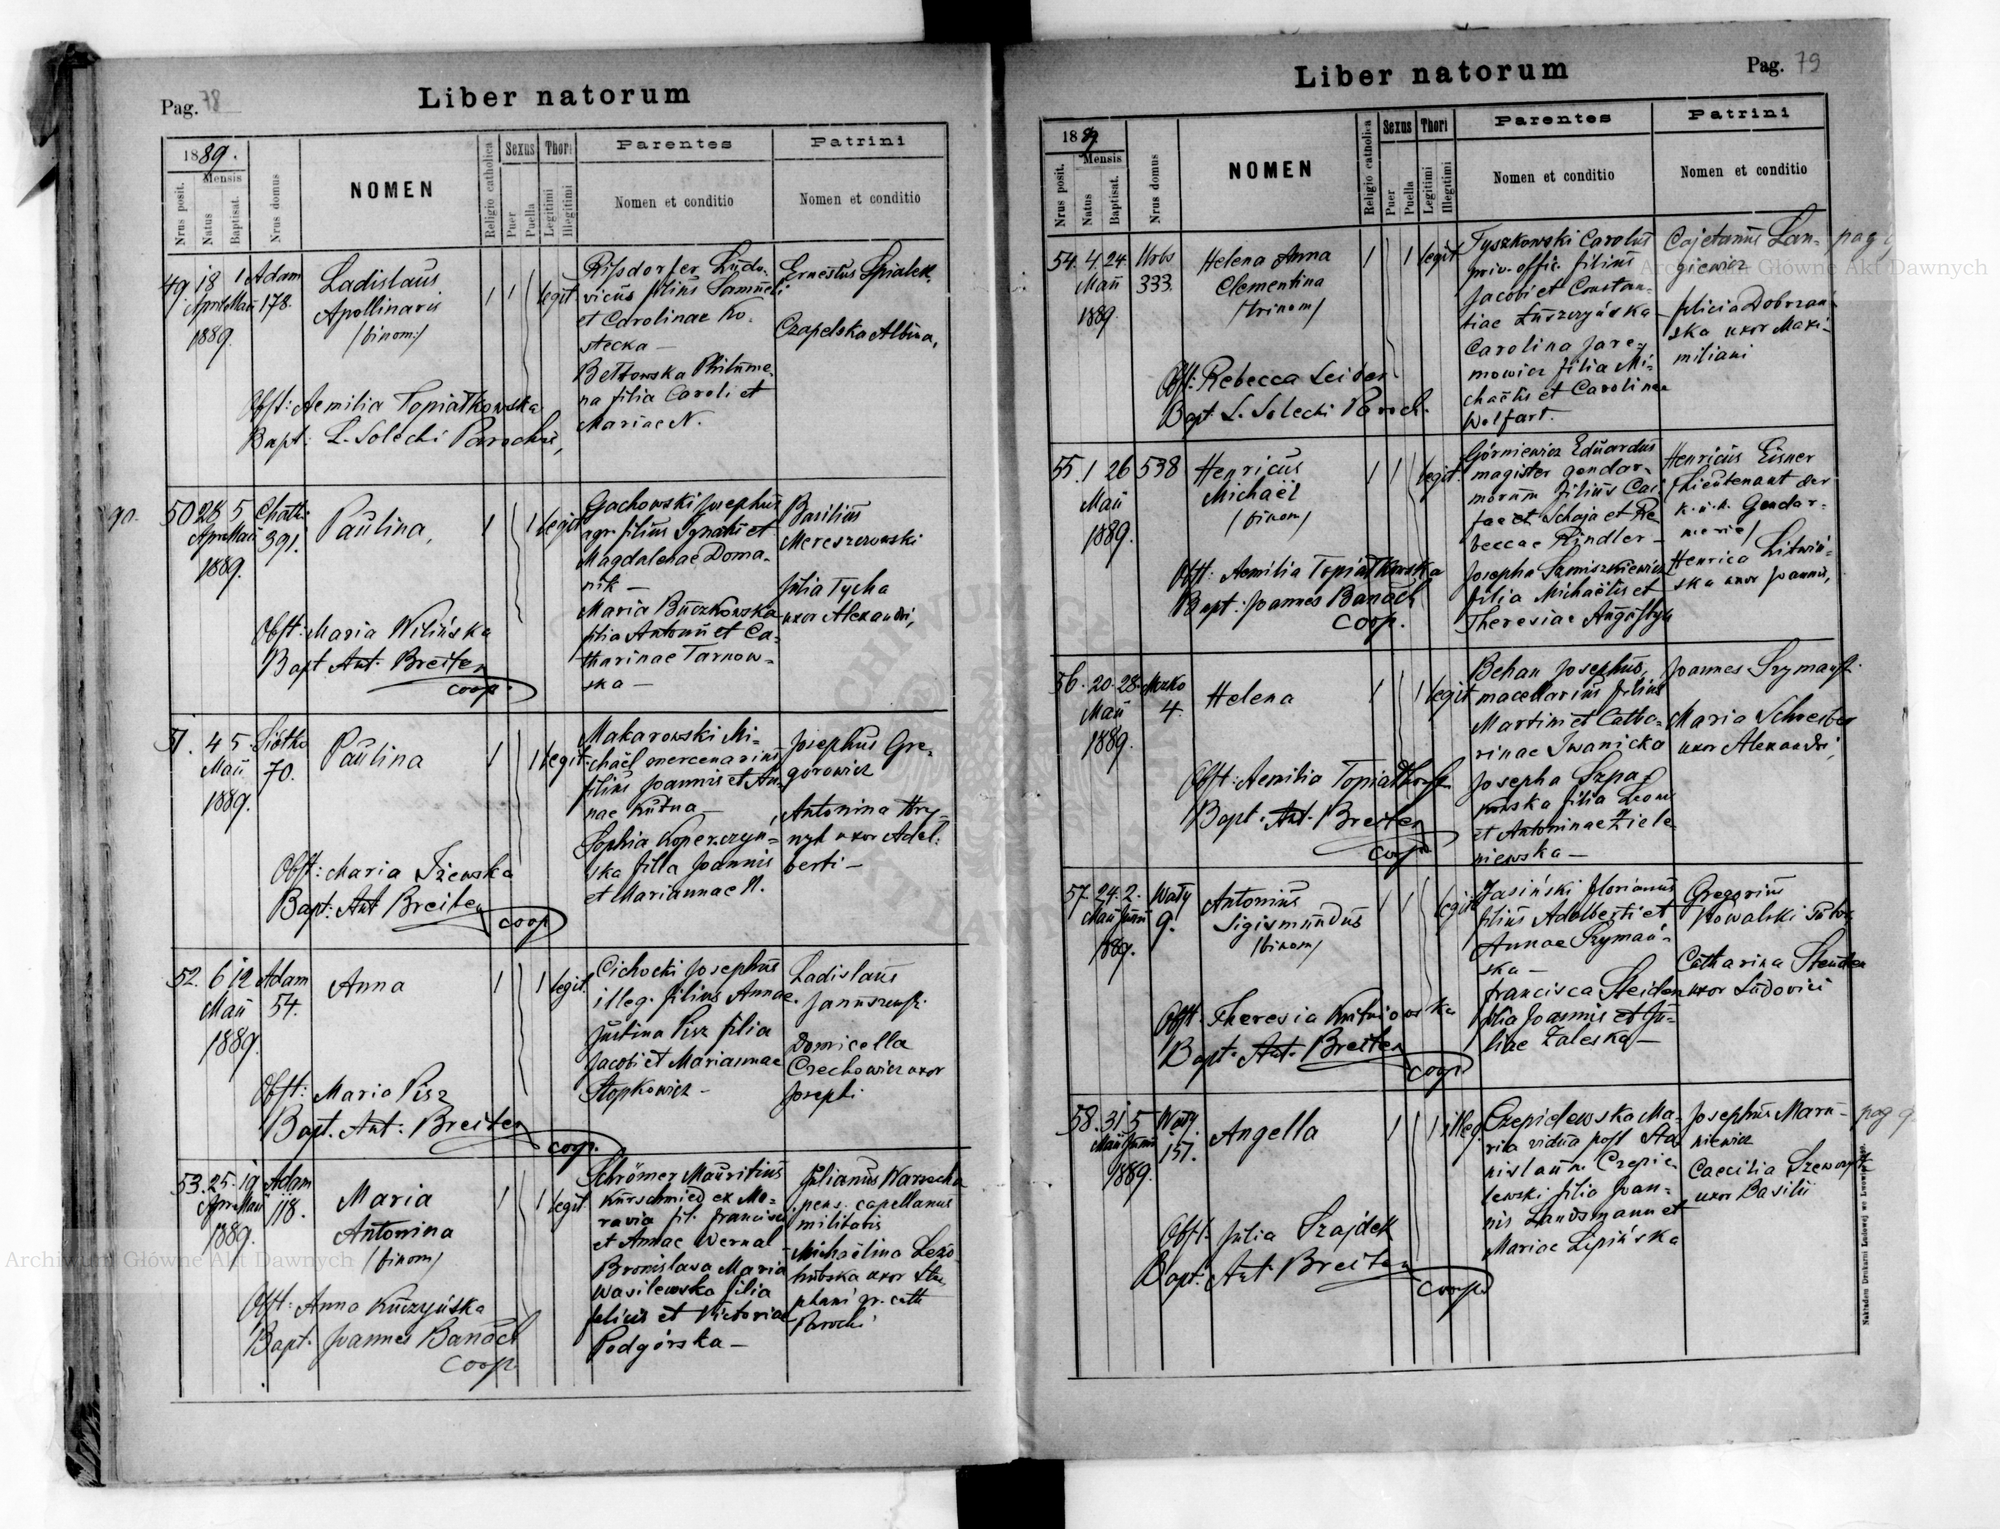 Pag. 78
Liber natorum
1889.
Mensis
Nrus posit.
Natus
Baptisat.
Nrus domus
NOMEN
Religio catholica
Sexus
Puer
Puella
Thori
Legitimi
Illegitimi
Parentes
Nomen et conditio
Patrini
Nomen et conditio
49 18 1 Adam
Apr. Maii 178.
1889.
Ladislaus
Apollinaris
/binom:/
1 1 legit
vicus filius Samueli
et Carolinae Ko-
stecka —
Bełtowska Philume-
na filia Caroli et
Mariae N.
Ernestus Spialek
Czapelska Albina,
Obst: Aemilia Topiatkowska
Bapt: L. Solecki Parochus,
50 28 5
Apr. Maii 391.
1889.
Paulina,
1 1 legit
Gachowski Josephus
agr. filius Ignatii et
Magdalenae Doma-
nik —
Maria Buczkowska
filia Antonii et Ca-
tharinae Tarnow-
ska —
Basilius
Mereszczowski
Julia Tycha
uxor Alexandri,
Obst: Maria Wilińska
Bapt Ant: Breiter
coop.
51. 4 5.
Maii 70.
1889.
Paulina
1 1 legit
Makarowski Mi-
chaël mercenarius
filius Joannis et An-
nae Kutna —
Sophia Koperczyń-
ska filia Joannis
et Mariannae N.
Josephus Gre-
gorowicz
Antonina Hry-
nyk uxor Adal-
berti —
Obst: Maria Iżewska
Bapt: Ant Breiter
coop
52. 6 12 Adam
Maii 54.
1889.
Anna
1 1 legit.
Cichocki Josephus
illeg. filius Annae.
Justina Pisz filia
Jacobi et Mariannae
Stopkowicz —
Ladislaus
Januszewsk.
Domicella
Czechowicz uxor
Josephi
Obst: Maria Pisz
Bapt. Ant: Breiter
coop.
53. 25. 19 Adam
Apr. Maii 118.
1889.
Maria
Antonina
/binom/
1 1 legit
Schrömer Mauritius
Kürschmied ex Mo-
ravia fil. Francisci
et Annae Wernal
Bronislava Maria
Wasilewska filia
Felicis et Victoriae
Podgórska —
Julianus Warzecha
pens. capellanus
militaris
Michaëlina
uxor Ste-
phani gr. cath
Parochi
Obst: Anna Kuczyńska
Bapt: Joannes Banach
coop.
Liber natorum
Pag. 79
1889.
Mensis
Nrus posit.
Natus
Baptisat.
Nrus domus
NOMEN
Religio catholica
Sexus
Puer
Puella
Thori
Legitimi
Illegitimi
Parentes
Nomen et conditio
Patrini
Nomen et conditio
54. 4. 24. Urbs
Maii 333.
1889
Helena Anna
Clementina
/trinom/
1 1 legit
Tyszkowski Carolus
priv. offic. filius
Jacobi et Constan-
tiae
Carolina Jare-
mowicz filia Mi-
chaëlis et Carolinae
Wolfart.
Cajetanus Lan-
giewicz
Felicia Dobrzań-
ska uxor Maxi-
miliani
pag
Obst: Rebecca Leider
Bapt L. Solecki Paroch.
55. 1 26 538
Maii
1889.
Henricus
Michaël
/binom/
1 1 legit.
Górniewicz Eduardus
magister gendar-
morum filius
et Schaja et Re-
beccae Kindler —
Josepha Samiszkiewicz
filia Michaëlis et
Theresiae Augustyn
Henricus Eisner
/Lieutenant der
k. u. k. Gendar-
merie/
Henrica Litwiń-
ska uxor Joannis,
Obst: Aemilia Topiatkowska
Bapt: Joannes Banach
Coop.
56. 20. 28.
Maii 4.
1889.
Helena
1 1 legit
Behan Josephus,
macellarius filius
Martini et Catha-
rinae Iwanicka
Josepha Szpa-
kowska filia Leonis
et Antoninae Ziele-
niewska —
Joannes Szymańsk.
Maria Schreiber
uxor Alexandri,
Obst: Aemilia Topiatkowsk
Bapt. Ant. Breiter
coop.
57. 24. 2. Wały
Maii Junii 9.
1889.
Antonius
Sigismundus
/binom/
1 1 legit
Jasiński Florianus
filius Adalberti et
Annae Szymań-
ska —
Francisca Steiden
filia Joannis et Ju-
liae Zaleska —
Gregorius
Kowalski
Catharina
uxor Ludovici
Obst. Theresia
Bapt. Ant. Breiter
coop
58. 31 5 Wały
Maii Junii 151.
1889.
Angella
1 1 illeg.
Czepielewska Ma-
ria vidua post Sta-
nislaum Czepie-
lewski filia Joan-
nis Landsmann et
Mariae Lipińska
Josephus Maru-
niewicz
Caecilia
uxor Basilii
pag 9
Obst. Julia Szajdek
Bapt: Ant. Breiter
coop.
Nakładem Drukarni Ludowej we Lwowie
Archiwum Główne Akt Dawnych
Archiwum Główne Akt Dawnych